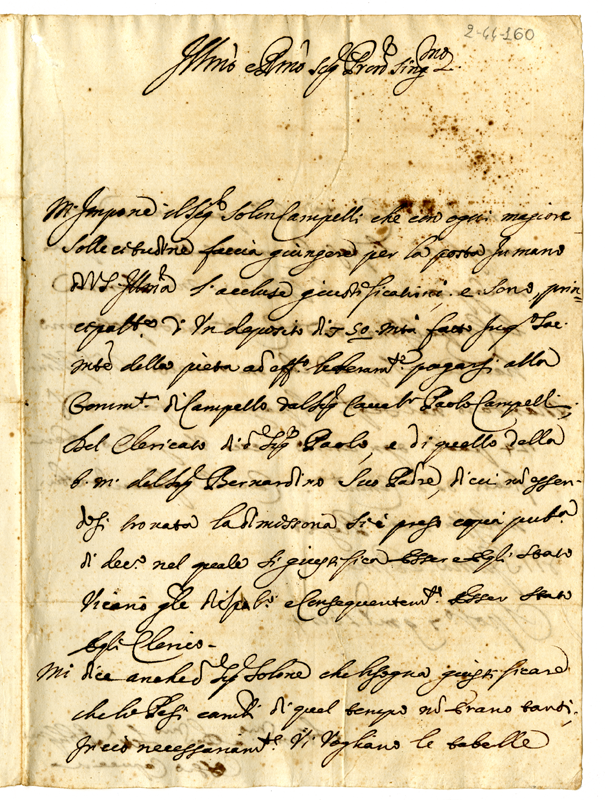 2-44-160
Illmo e Pmo Sig Prone Singmo
Mi Impone il Sig Solon Campelli che con ogni magiore
Sollecitudine faccia giungere per la posta in mano
di VS. Illma l'accluse giustificationi, e sono prin-
cipalte di Un deposito di 50 mta fatto in qo Sac.
Monte della pieta ad effo liberamte pagarsi alla
Commta di Campello dal Sig Cavalr Paolo Campelli,
Del Clericato di do Sig Paolo, e di quello della
b. m. del Sig Bernardino Suo Padre, di cui nō essen-
dosi trovata la dimissoria si è preso copia pubca
di dece nel quale si giustifica Esser Egli stato
Vicario gle di Spolo e Consequentemte Esser stato
Egli Clerico.
Mi dice anche do Sig Solone che bisogna giustificare
che li Pesi cam di quel tempo nō Erano tanti,
In ciò necessariamte Vi Vogliano le tabelle